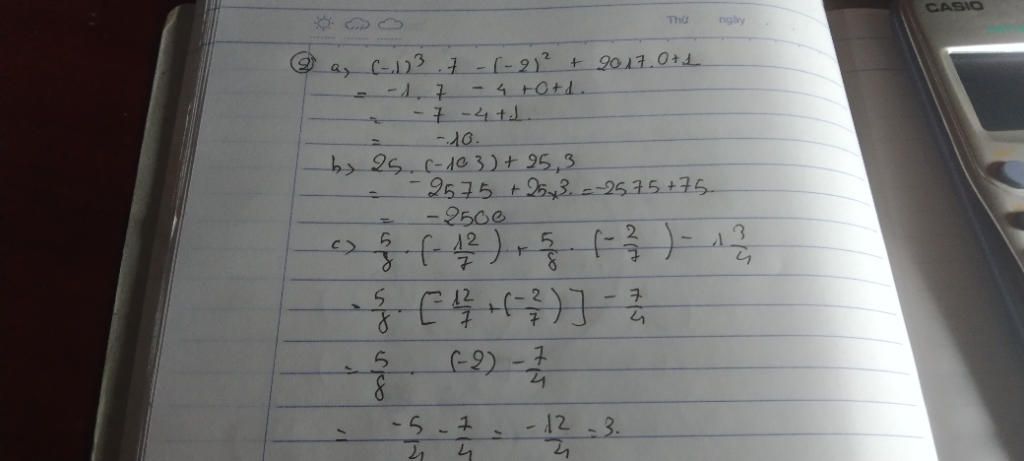 CASIO
Thứ ngày
② a, (-1)³ . 7 - (-2)² + 2017.0+1
= -1. 7 - 4 +0+1.
= -7 -4+1.
= -10.
b, 25. (-103) + 25,3
= -2575 + 25×3 = -2575 +75.
= -2500
c, 5/8 . (-12/7) + 5/8 . (-2/7) - 1 3/4
= 5/8 . [-12/7 + (-2/7)] - 7/4
= 5/8 . (-2) - 7/4
= -5/4 - 7/4 = -12/4 = 3.